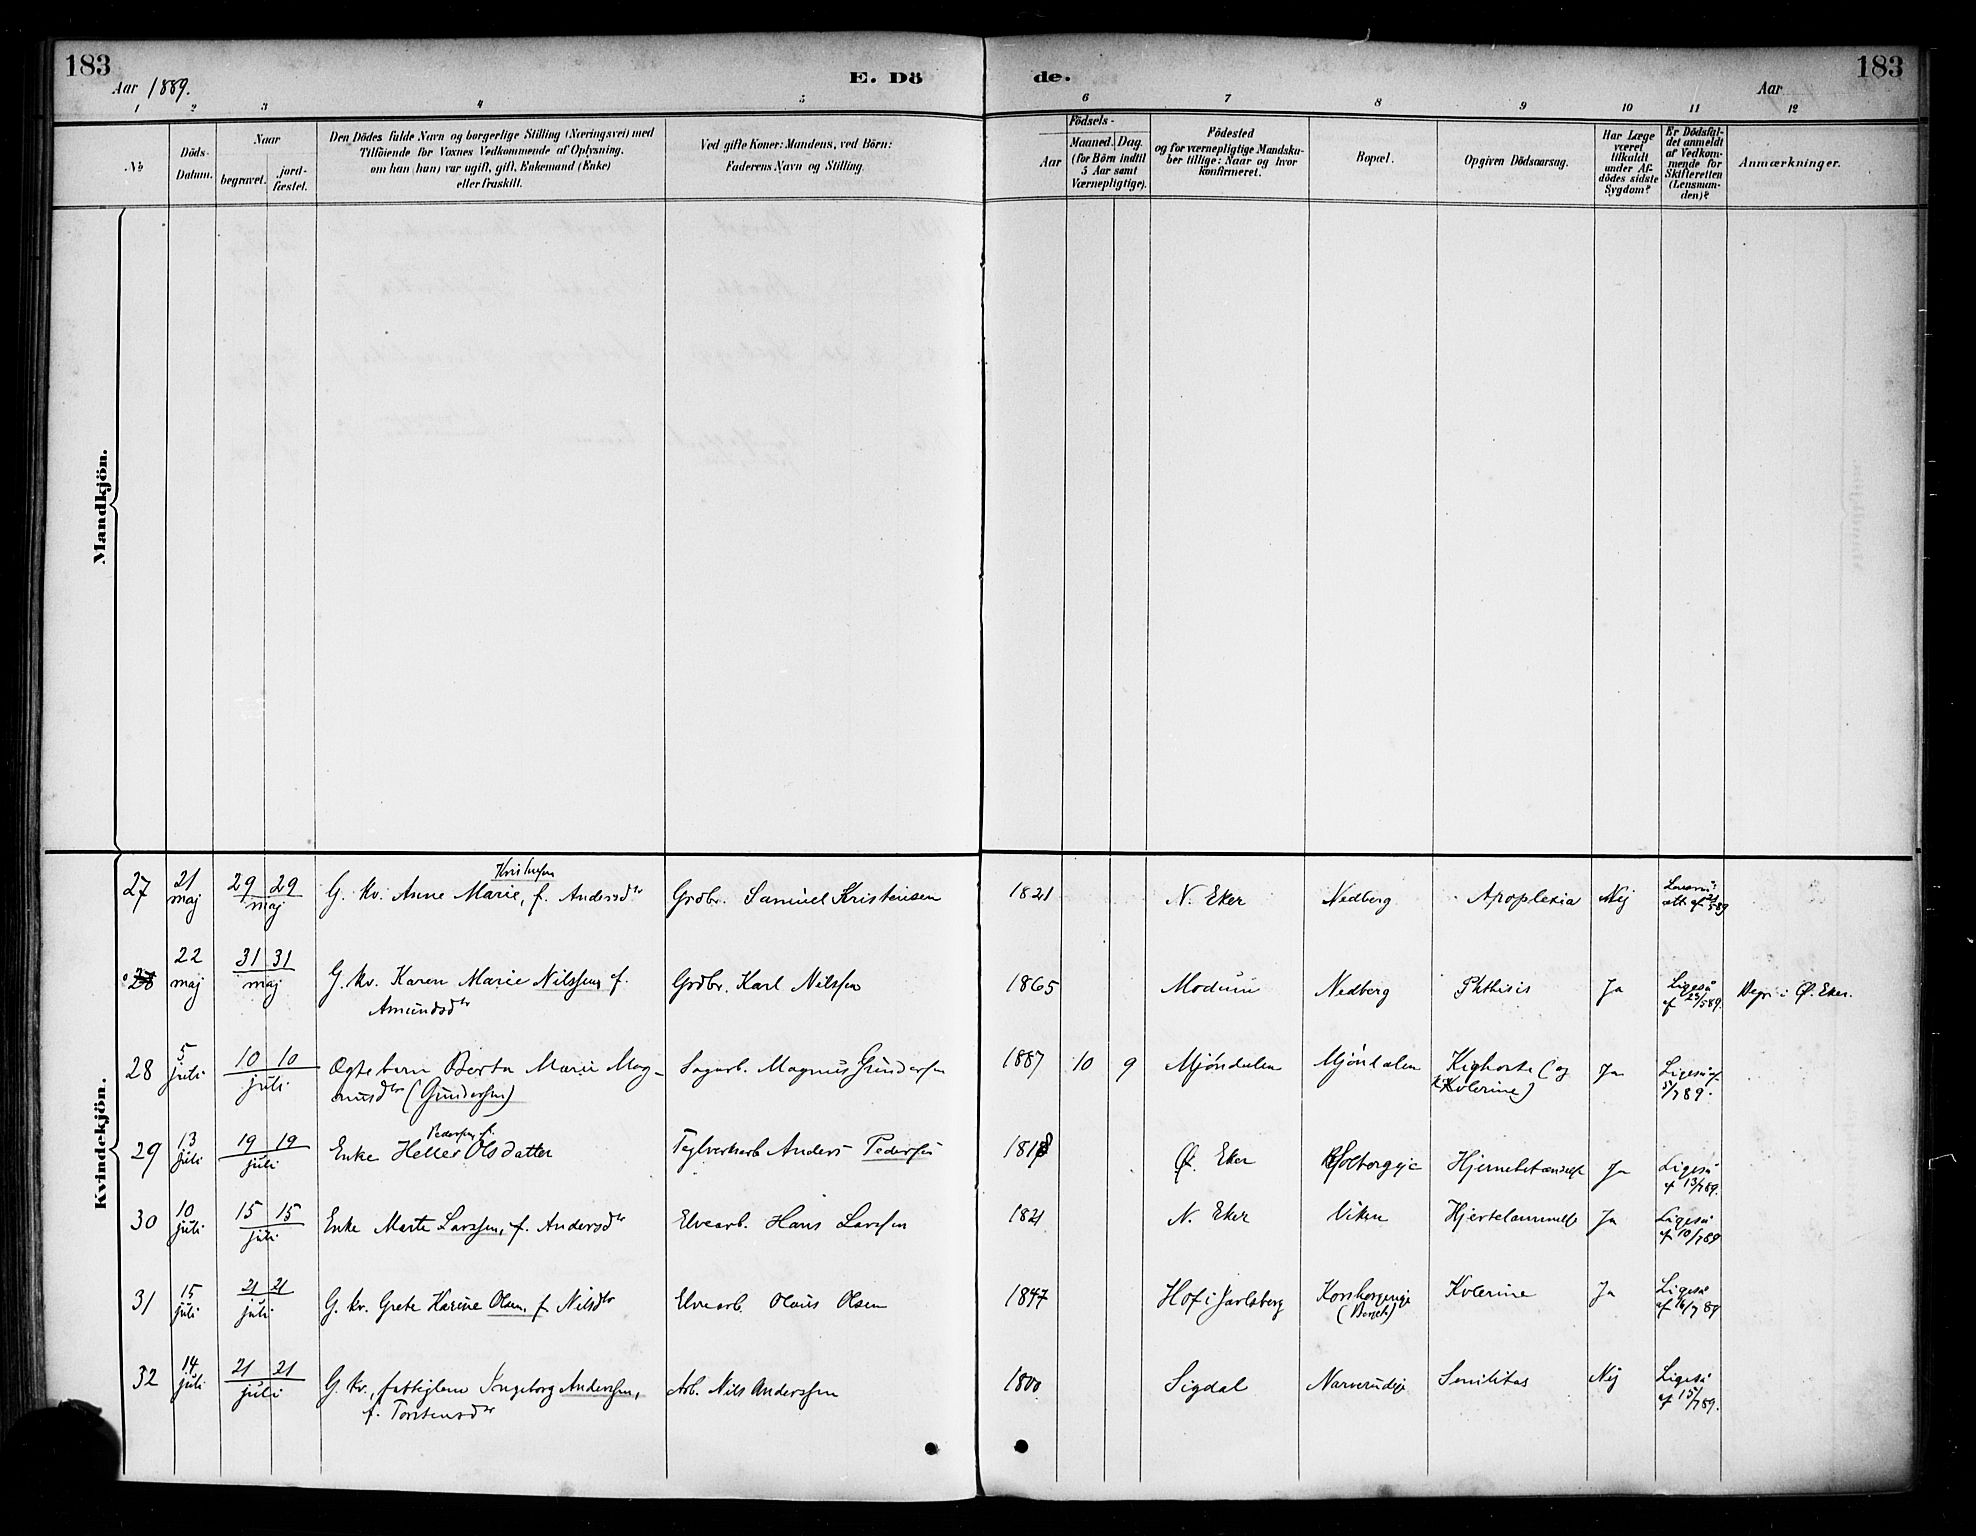 183
Aar 1889.
E. Dö
de.
Aar
183
1 2 3 4 5 6 7 8 9 10 11 12
No
Döds-
Datum.
Naar
begravet.
jord-
fæstet.
Den Dödes fulde Navn og borgerlige Stilling (Næringsvei) med
Tilföiende for Voxnes Vedkommende af Oplysning,
om han (hun) var ugift, gift, Enkemand (Enke)
eller fraskilt.
Ved gifte Koner: Mandens, ved Börn:
Faderens Navn og Stilling.
Födsels-
Aar
Maaned. Dag.
(for Börn indtil
5 Aar samt
Værnepligtige).
Födested
og for værnepligtige Mandska-
ber tillige: Naar og hvor
konfirmeret.
Bopæl.
Opgiven Dödsaarsag.
Har Læge
været
tilkaldt
under Af-
dödes sidste
Sygdom?
Er Dödsfal-
det anmeldt
af Vedkom-
mende for
Skifteretten
(Lensman-
den)?
Anmærkninger.
Mandkjön.
Kvindekjön.
27 21 maj 29 29 maj G. kv. Anne Marie Kristensen, f. Andersdtr Grdbr. Samuel Kristensen 1821 N. Eker Nedberg Apoplexia Nej
28 22 maj 31 31 maj G. kv. Karen Marie Nilssen, f.
Amundsdtr Grdbr. Karl Nilssen 1865 Modum Nedberg Phthisis Ja Ligeså
af 23/5 89. i Ø. Eker.
28 5 juli 10 10 juli Ægtebarn Berta Marie Mag-
nusdtr (Gundersen) Sagarb. Magnus Gundersen 1887 10 9 Mjøndalen Mjöndalen Kighoste (og
Kolerine) Ja Ligeså af
5/7 89.
29 13 juli 19 19 juli Enke Helle Pedersen f. Olsdatter Teglverksarb Anders Pedersen 1818 Ø. Eker Solbergeje Hjernebetændelse Ja Ligeså
af 13/7 89.
30 10 juli 15 15 juli Enke Marte Larssen, f. Andersdtr Elvearb. Hans Larssen 1821 N. Eker Viken Hjertelammelse Ja Ligeså
af 10/7 89
31 15 juli 21 21 juli G. kv. Grete Karine Olsen, f. Nilsdtr Elvearb. Olaus Olsen 1847 Hof i Jarlsberg Kolerine Ja Ligeså
af 16/7 89
32 14 juli 21 21 juli G. kv., fattiglem Ingeborg Anderssen,
f. Torstensdtr Arb. Nils Anderssen 1800 Sigdal Narverudeje Senilitas Nej Ligeså
af 15/7 89.